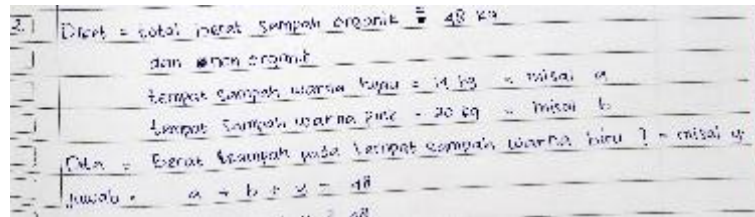 2. Diket = total berat sampah organik = 48 kg
dan non organik
tempat sampah warna hijau = 14 kg = misal a
tempat sampah warna pink = 20 kg = misal b
Dita = Berat sampah pada tempat sampah warna biru ? = misal y
Jawab = a + b + y = 48
= 48